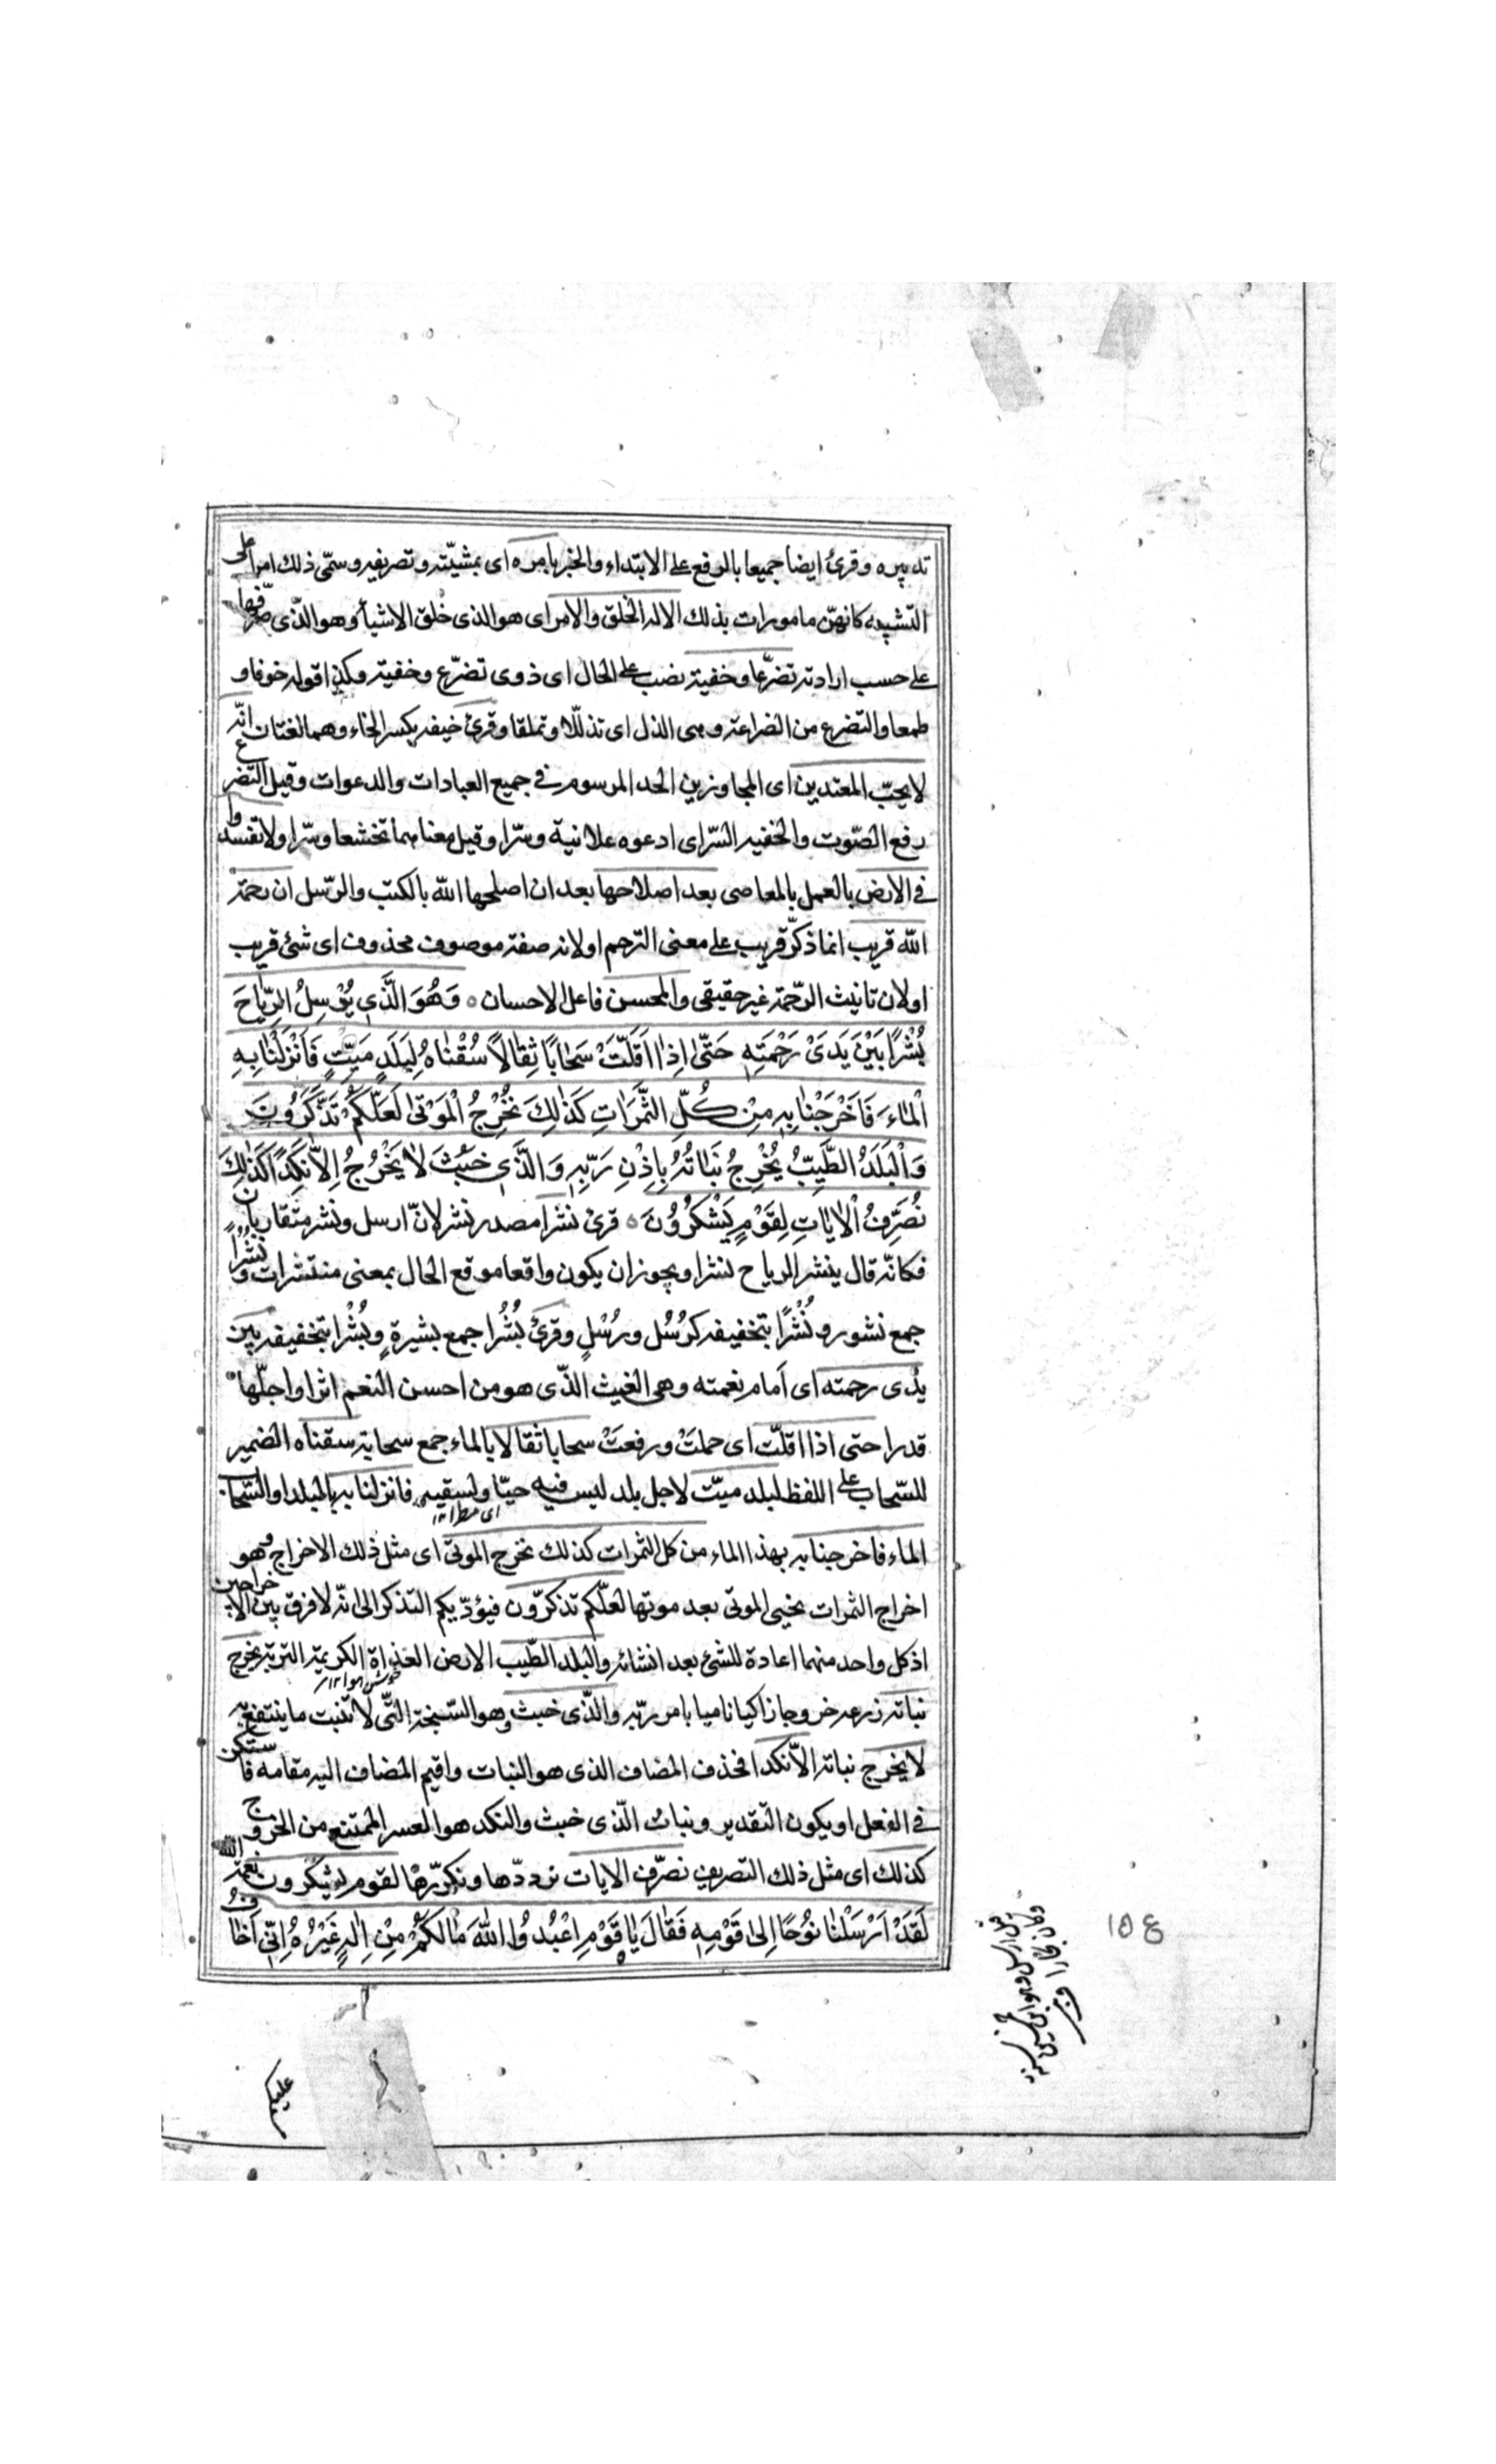 تدبيره وقرئ ايضا جميعا بالرفع على الابتداء والخبر بامره اى بمشيّته وتصريفه وسمّى ذلك امرا على
التشبيه كانهنّ مامورات بذلك الا له الخلق والامر اى هو الذى خلق الاشياء وهو الذّى صرّفها
على حسب ارادته تضرّعا وخفية نصب على الحال اى ذوى تضرّع وخفية وكذا قوله خوفا و
طمعا والتضرع من الضراعة وهى الذل اى تذلّلا وتملقا وقرئ خيفه بكسر الخاء وهما لغتان انّه
لا يحبّ المعتدين اى المجاوزين الحد المرسوم فى جميع العبادات والدعوات وقيل التضرع
رفع الصّوت والخفيه السّر اى ادعوه علانية وسّرا وقيل معناهما تخشعا وسّرا ولا تفسدوا
فى الارض بالعمل بالمعاصى بعد اصلاحها بعد ان اصلحها اللّه بالكتب والرّسل ان رحمة
اللّه قريب انما ذكّر قريب على معنى الترحم او لانه صفة موصوف محذوف اى شئ قريب
او لان تانيث الرّحمة غير حقيقى والمحسن فاعل الاحسان ٥ وَهُوَ الَّذي يُرْسِلُ الرِّيٰاحَ
بُشْرًا بَيْنَ يَدَىْ رَحْمَتِهِ حَتّىٰ اِذٰا اَقَلَّتْ سَحٰابًا ثِقٰالاً سُقْنٰاهُ لِبَلَدٍ مَيّتٍ فَاَنْزَلْنٰا بِهِ
الْمٰاءَ فَاَخْرَجْنٰا بِهِ مِنْ كُلِّ الثَّمَرٰاتِ كَذٰلِكَ نُخْرِجُ الْمَوْتىٰ لَعَلَّكُمْ تَذَّكَّرُونَ
وَالْبَلَدُ الطَّيِّبُ يُخْرِجُ نَبٰاتُهُ بِاِذْنِ رَبِّهِ وَالَّذي خَبُثَ لٰا يَخْرُجُ اِلاّٰ نَكِدًا كَذٰلِكَ
نُصَرِّفُ الْاٰيٰاتِ لِقَوْمٍ يَشْكُرُونَ ٥ قرئ نشرا مصدر نشر لانّ ارسل ونشر متقاربان
فكانّه قال ينشر الرياح نشرا ويجوز ان يكون واقعا موقع الحال بمعنى منتشرات ونُشُرًا
جمع نشور ونُشْرًا بتخفيفه كرُسُل ورُسْلٍ وقرئ بُشُرا جمع بشيرةٍ وبُشْرا بتخفيفه بين
يدى رحمته اى اَمام نعمته وهى الغيث الذّى هو من احسن النعم اثرا واجلّها
قدرا حتى اذا اقلّت اى حملتْ ورفعتْ سحابا ثقالا بالماء جمع سحابة سقناه الضمير
للسّحاب على اللفظ لبلد ميّت لاجل بلد ليس فيه حيّا ولسقيه فانزلنا به بالبلد او السّحاب
اى مطرا ١٢
الماء فاخرجنا به بهذا الماء من كل الثمرات كذلك نخرج الموتى اى مثل ذلك الاخراج وهو
اخراج الثمرات نحيى الموتى بعد موتها لعلّكم تذكّرون فيؤدّيكم التذكر الى انّه لا فرق بين الاخراجين
اذ كل واحد منهما اعادة للشئ بعد انشائه والبلد الطّيب الارض العذاة الكريمة التربة يخرج
نباته زرعه خروجا زاكيا ناميا بامر ربّه والذّى خبث وهو السّبخة التّى لا تنبت ما ينتفع به
لا يخرج نباته الاّ نكدا فحذف المضاف الذى هو النبات واقيم المضاف اليه مقامه فاستكن
فى الفعل او يكون التقدير ونبات الّذى خبث والنكد هو العسر الممتنع من الخروج
كذلك اى مثل ذلك التصريف نصرّف الايات نرددّها ونكرّرها لقوم يشكرون نعمة اللّه
لَقَدْ اَرْسَلْنٰا نُوْحًا اِلىٰ قَوْمِهِ فَقٰالَ يٰا قَوْمِ اعْبُدُوا اللّٰهَ مٰا لَكُمْ مِنْ اِلٰهٍ غَيْرُهُ اِنّي اَخٰافُ
١٥٤
عليكم